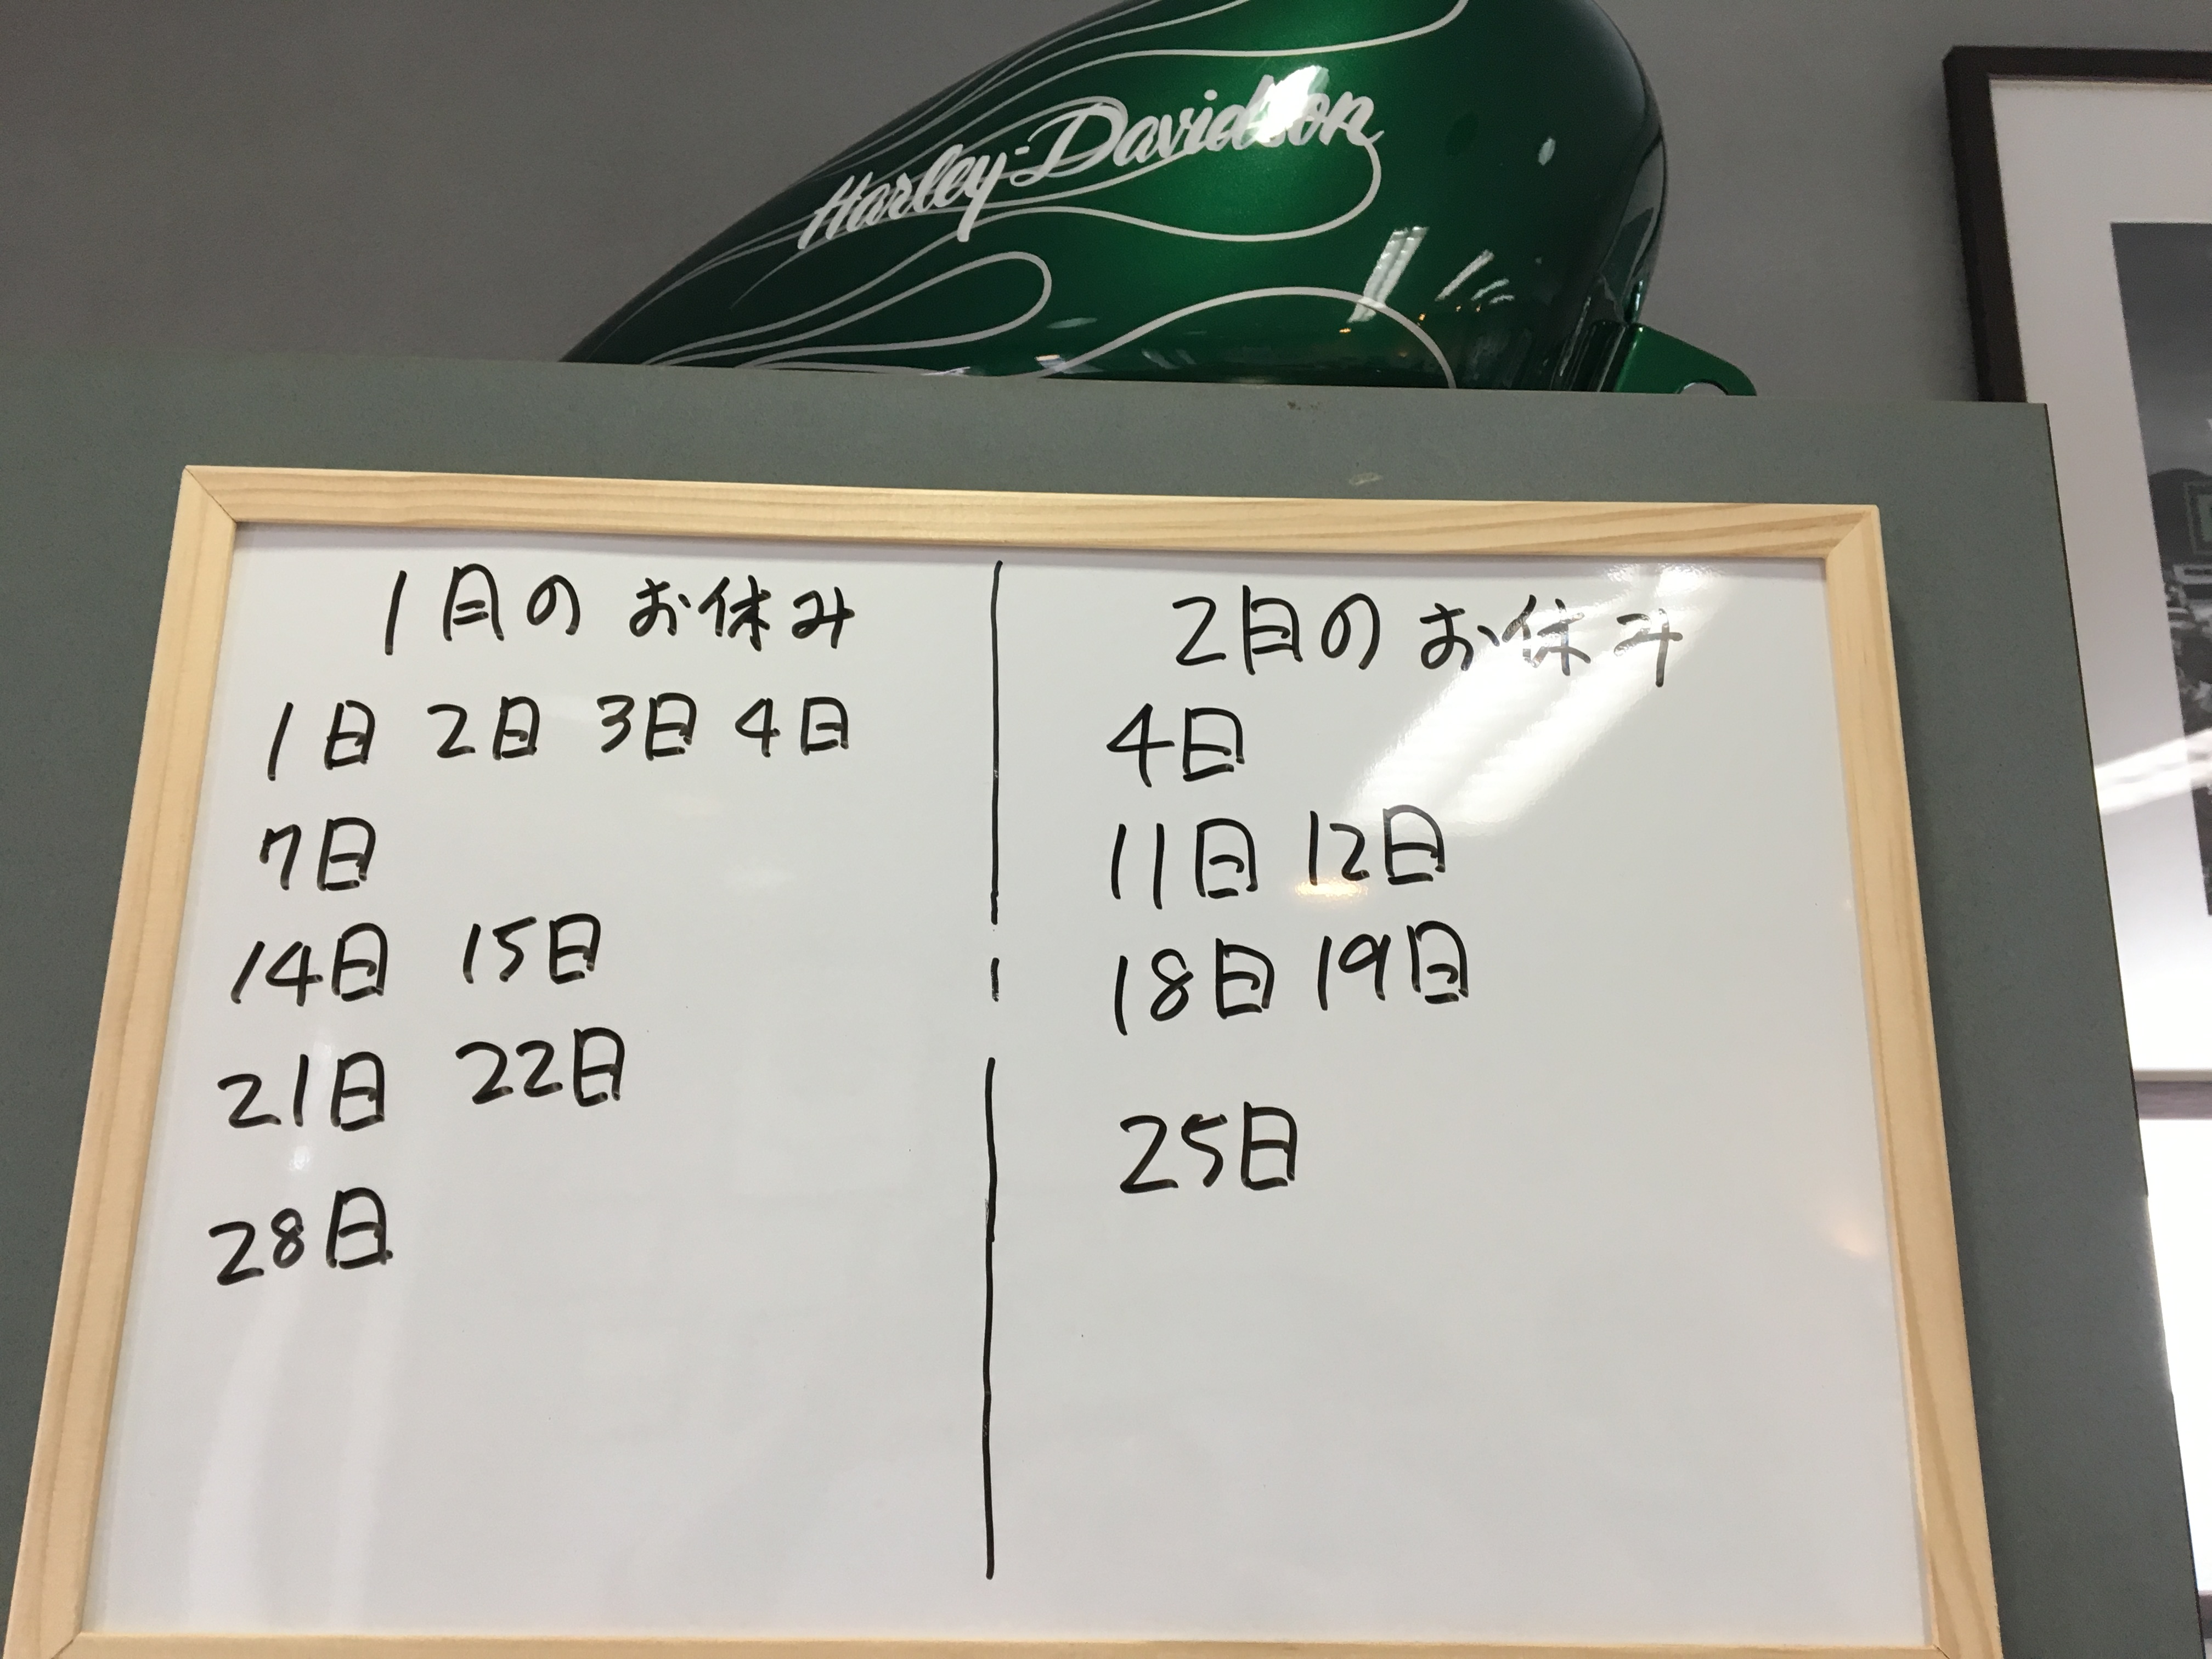 Harley-Davidson
1月のお休み
1日 2日 3日 4日
7日
14日 15日
21日 22日
28日
2月のお休み
4日
11日 12日
18日 19日
25日